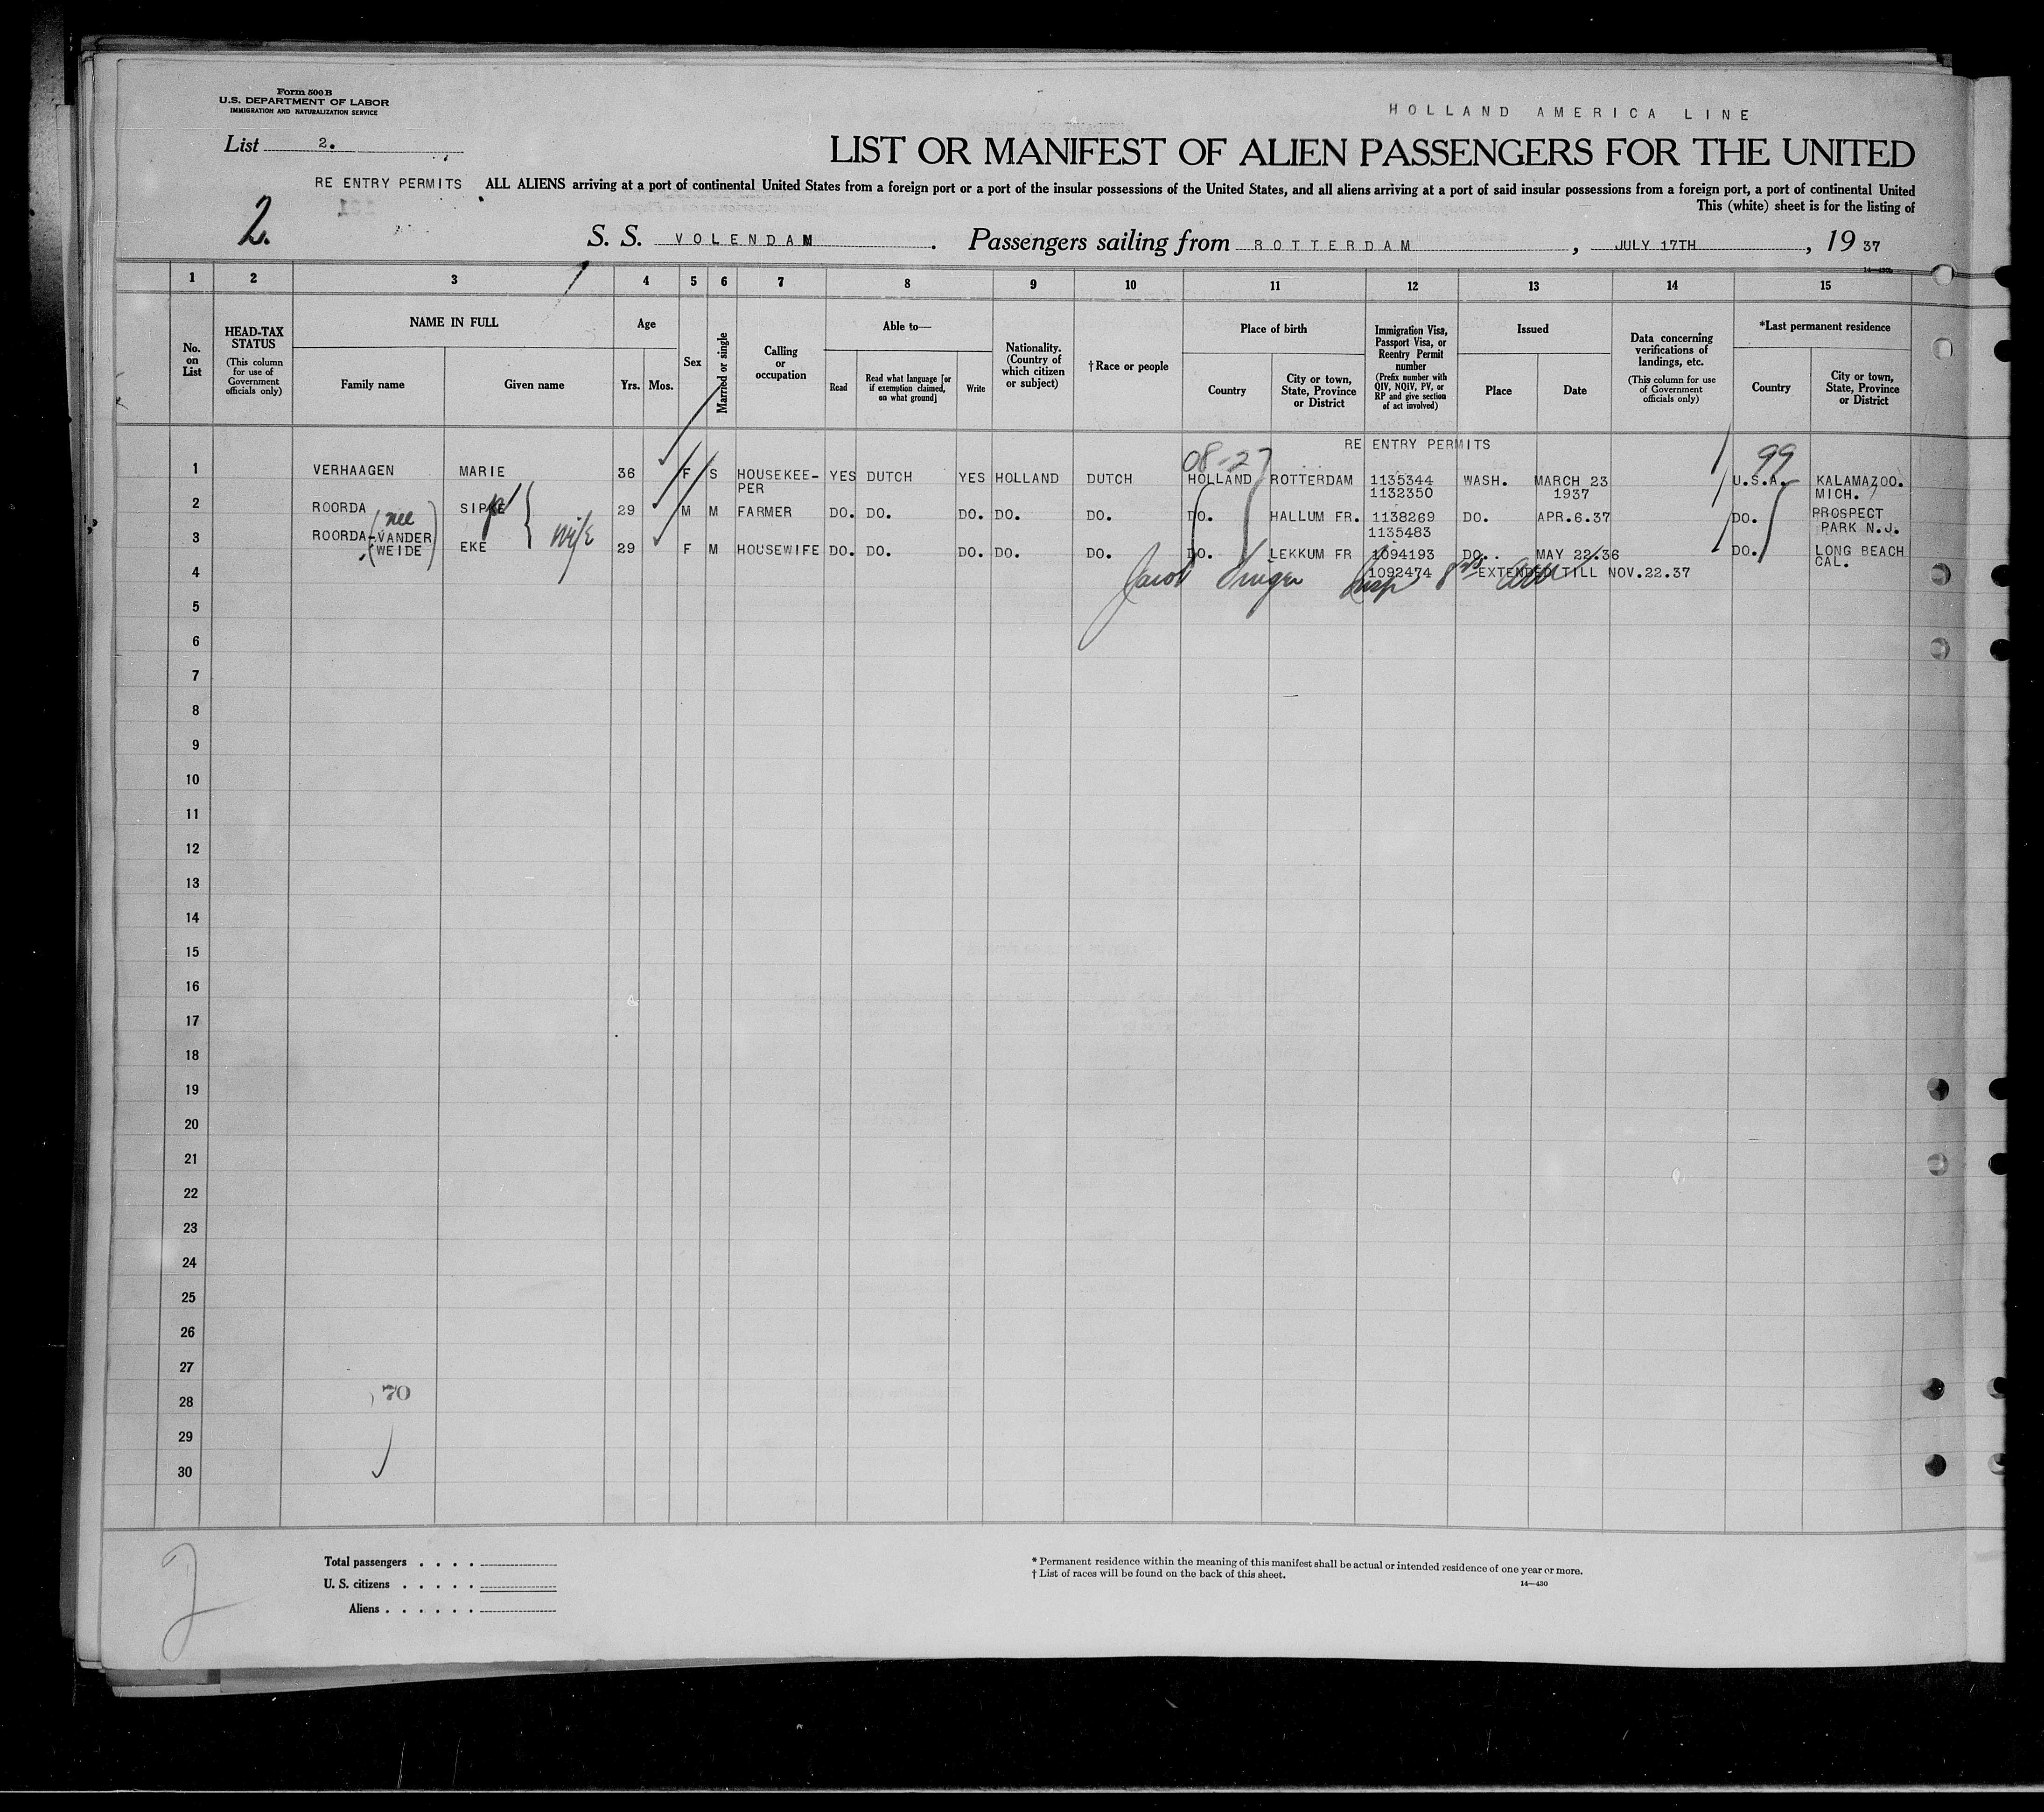 Form 500 B
U.S. DEPARTMENT OF LABOR
IMMIGRATION AND NATURALIZATION SERVICE
HOLLAND AMERICA LINE
List 2.
LIST OR MANIFEST OF ALIEN PASSENGERS FOR THE UNITED
RE ENTRY PERMITS ALL ALIENS arriving at a port of continental United States from a foreign port or a port of the insular possessions of the United States, and all aliens arriving at a port of said insular possessions from a foreign port, a port of continental United
This (white) sheet is for the listing of
2.
S. S. VOLENDAM. Passengers sailing from ROTTERDAM, JULY 17TH, 19 37
14—430
1 2 3 4 5 6 7 8 9 10 11 12 13 14 15
No. on List
HEAD-TAX STATUS
(This column for use of Government officials only)
NAME IN FULL
Family name Given name
Age
Yrs. Mos.
Sex
Married or single
Calling or occupation
Able to—
Read
Read what language [or if exemption claimed, on what ground]
Write
Nationality. (Country of which citizen or subject)
† Race or people
Place of birth
Country
City or town, State, Province or District
Immigration Visa, Passport Visa, or Reentry Permit number
(Prefix number with QIV, NQIV, PV, or RP and give section of act involved)
Issued
Place Date
Data concerning verifications of landings, etc.
(This column for use of Government officials only)
*Last permanent residence
Country
City or town, State, Province or District
RE ENTRY PERMITS
08-27 99
1 VERHAAGEN MARIE 36 F S HOUSEKEE- YES DUTCH YES HOLLAND DUTCH HOLLAND ROTTERDAM 1135344 WASH. MARCH 23 U.S.A. KALAMAZOO.
PER 1132350 1937 MICH.
2 ROORDA SIPKE 29 M M FARMER DO. DO. DO. DO. DO. DO. HALLUM FR. 1138269 DO. APR.6.37 DO. PROSPECT
1135483 PARK N.J.
nee
wife
3 ROORDA-(VANDER
WEIDE) EKE 29 F M HOUSEWIFE DO. DO. DO. DO. DO. DO. LEKKUM FR 1094193 DO. MAY 22.36 DO. LONG BEACH
CAL.
4 1092474 EXTENDED TILL NOV.22.37
Jacob Singer Insp
5
6
7
8
9
10
11
12
13
14
15
16
17
18
19
20
21
22
23
24
25
26
27
28 70
29
30
2
Total passengers . . . .
U. S. citizens . . . . .
Aliens . . . . . .
* Permanent residence within the meaning of this manifest shall be actual or intended residence of one year or more.
† List of races will be found on the back of this sheet.
14—430